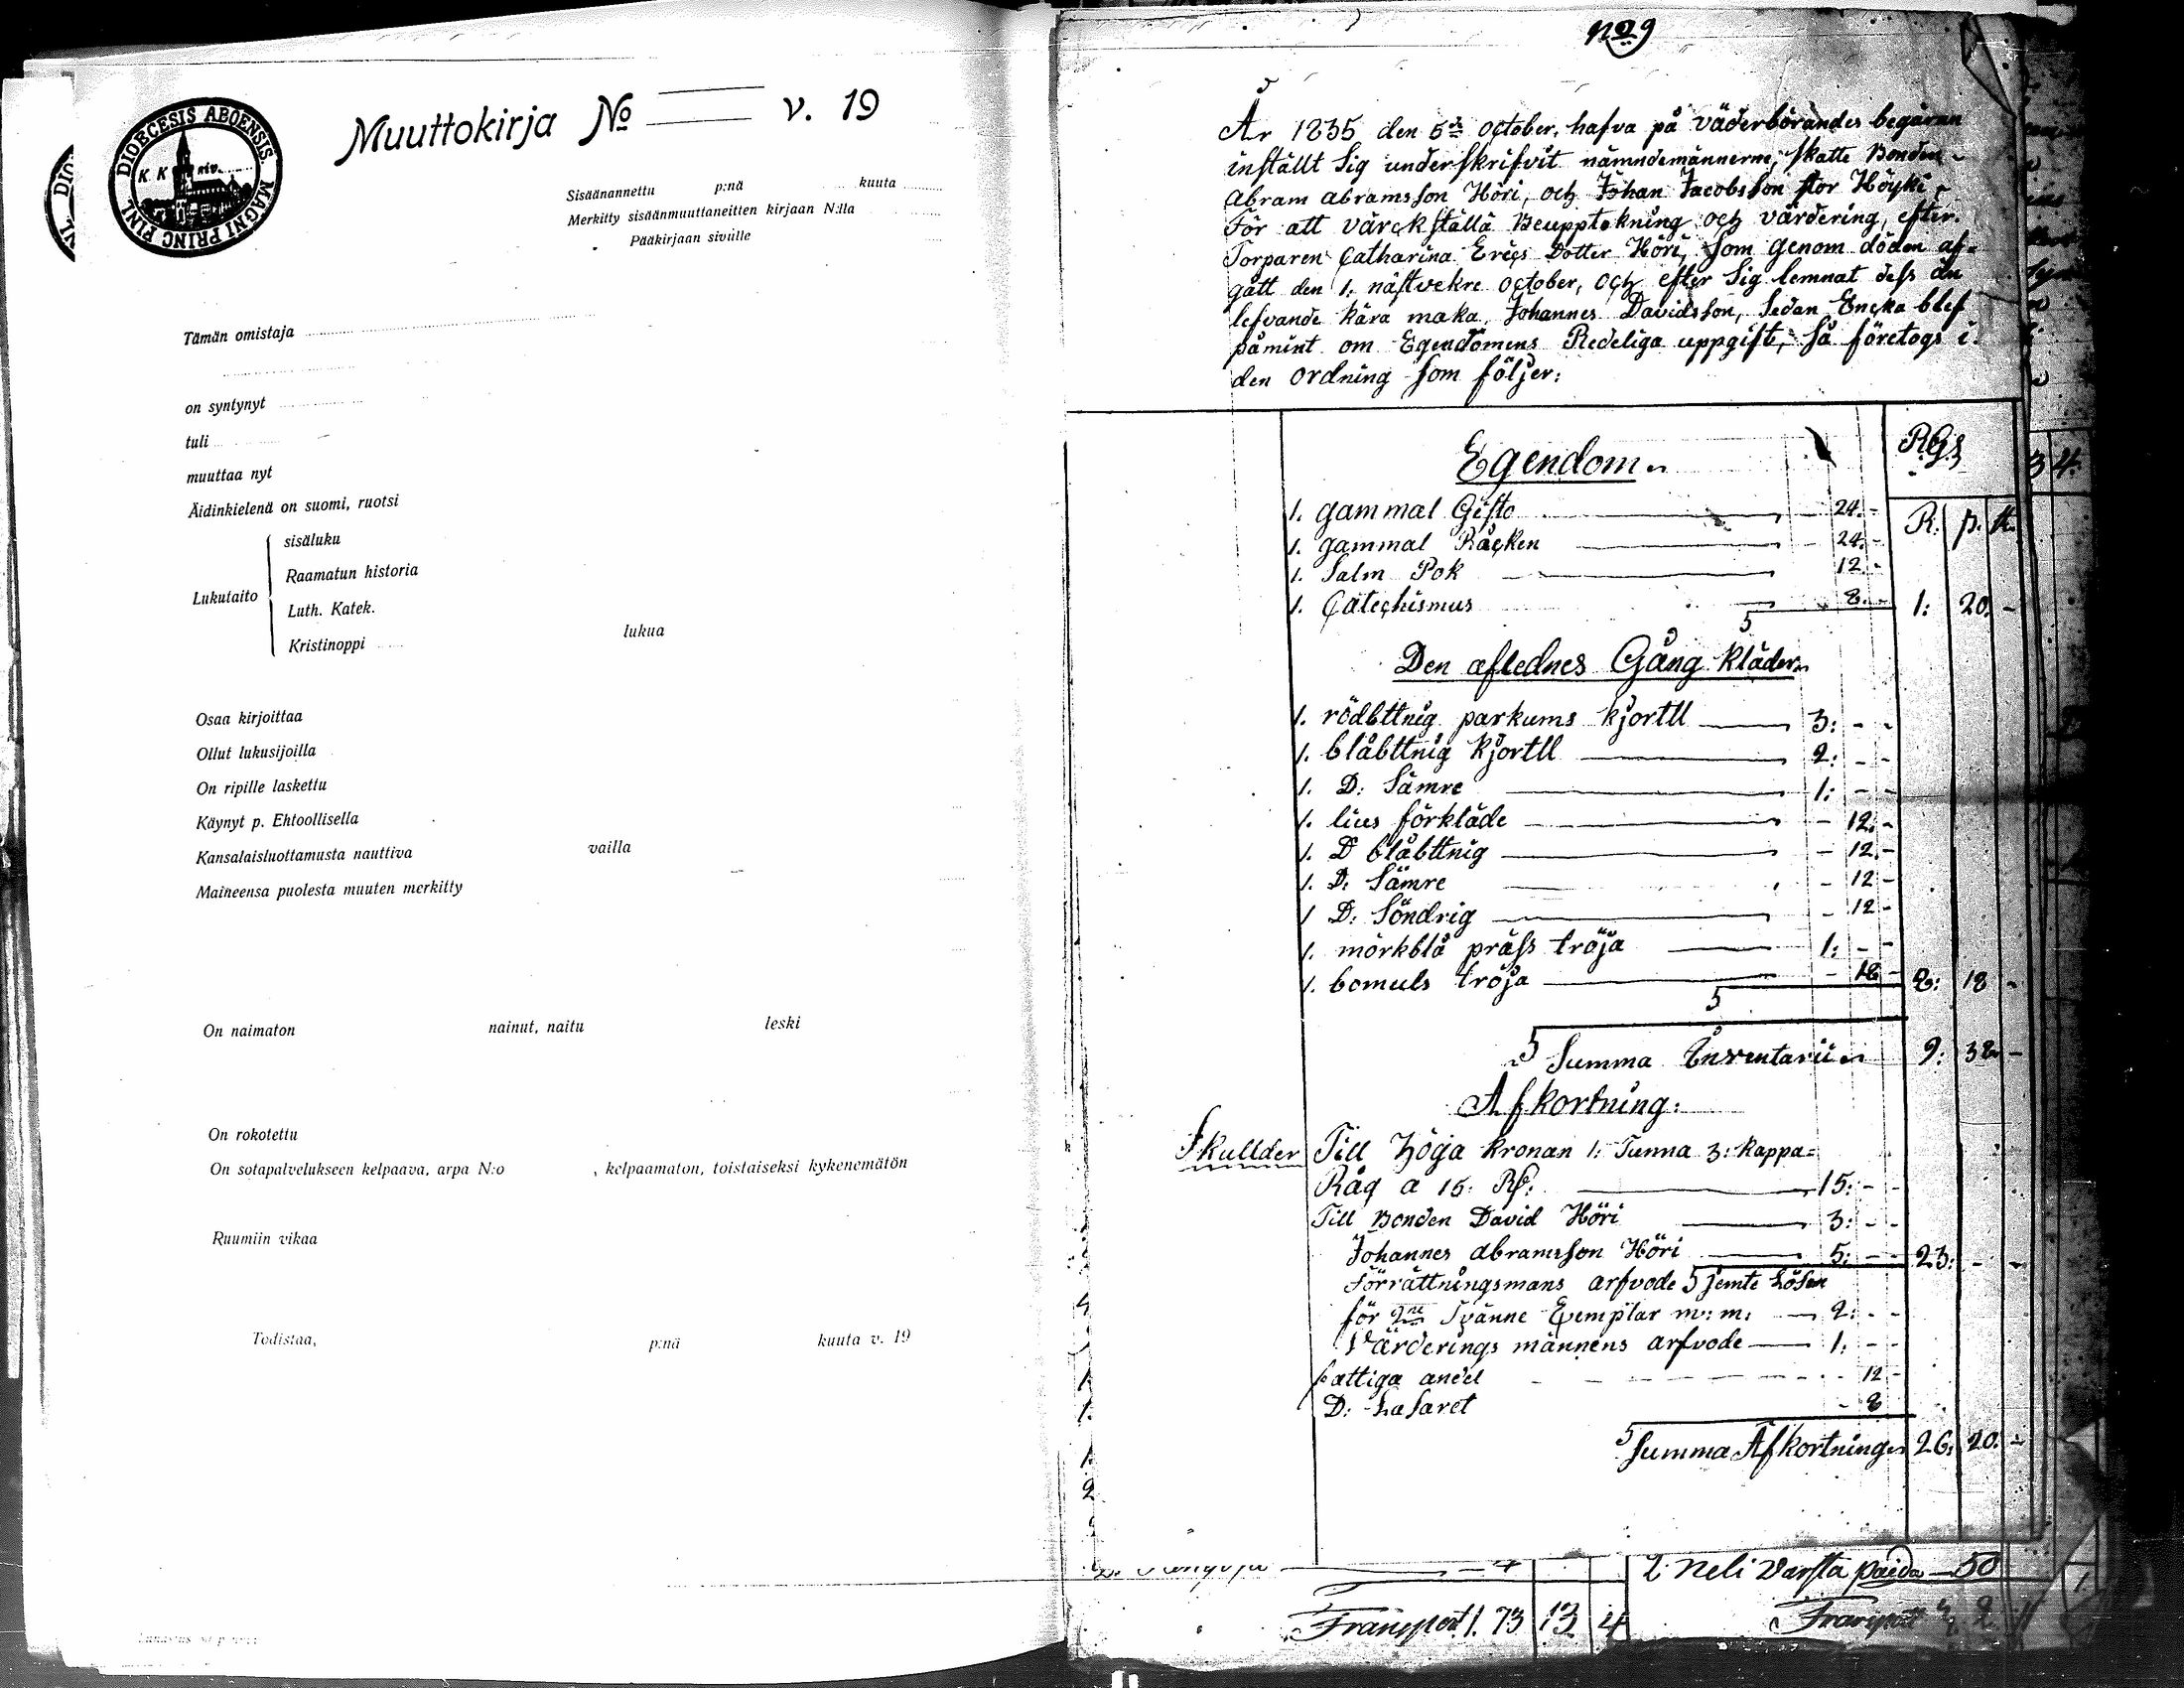 DIOECESIS ABOENSIS. MAGNI PRINC FINL
K. K
Muuttokirja No v. 19
Sisäänannettu p:nä kuuta
Merkitty sisäänmuuttaneitten kirjaan N:lla
Pääkirjaan sivulle
Tämän omistaja
on syntynyt
tuli
muuttaa nyt
Äidinkielenä on suomi, ruotsi
sisäluku
Raamatun historia
Lukutaito
Luth. Katek.
Kristinoppi lukua
Osaa kirjoittaa
Ollut lukusijoilla
On ripille laskettu
Käynyt p. Ehtoollisella
Kansalaisluottamusta nauttiva vailla
Maineensa puolesta muuten merkitty
On naimaton nainut, naitu leski
On rokotettu
On sotapalvelukseen kelpaava, arpa N:o , kelpaamaton, toistaiseksi kykenemätön
Ruumiin vikaa
Todistaa, p:nä kuuta v. 19
No 9
År 1835 den 5te October, hafva på väderbörandes begäran
inställt Sig underskrifvit nämndemännerne, Skatte Bonden
Abram Abramsson Höri, och Johan Jacobsson stor Höyki
För att värckställä Beupptekning och värdering, efter
Torparen Catharina Erics Dotter Höri, Som genom döden af=
gått den 1. nästvekre October, och efter Sig lemnat dess än
lefvande kära maka, Johannes Davidsson, Sedan Encka blef
påmint om Egendomens Redeliga uppgift, Så företogs i
den ordning Som följer:
Egendom
R:Gs
R. p. K.
1. gammal Gisto 24. -
1. gammal Räcken 24. -
1. Salm Pok 12. -
1. Catechismus 8. - 1: 20. -
Den aflednes Gång kläder
1. rödbttnig parkums kjortll 3: - -
1. blåbttnig kjortll 2: - -
1. D: Sämre 1: - -
1. lius förkläde - 12. -
1. D blåbttnig - 12. -
1. D: Sämre - 12 -
1 D: Söndrig - 12 -
1. mörkblå präss tröja 1: - -
1. bomuls tröja - 18 - 8: 18 -
Summa Inventarii 9: 38 -
Afkortning:
Skullder Till höga kronan 1: Tunna 3: kappa=
Råg a 15: Rb: 15: - -
Till Bonden David Höri 3: - -
Johannes Abramsson Höri 5: - - 23: - -
Förrättningsmans arfvode jemte Lösen
för 2ne Tvänne Exemplar m: m: 2: - -
Värderings männens arfvode 1: - -
fattiga andel 12 -
D: Lasaret - 8
Summa Afkortning 26: 20. -
2. Neli Varsta paida 50
Transport 1. 73 13. 4
Transport